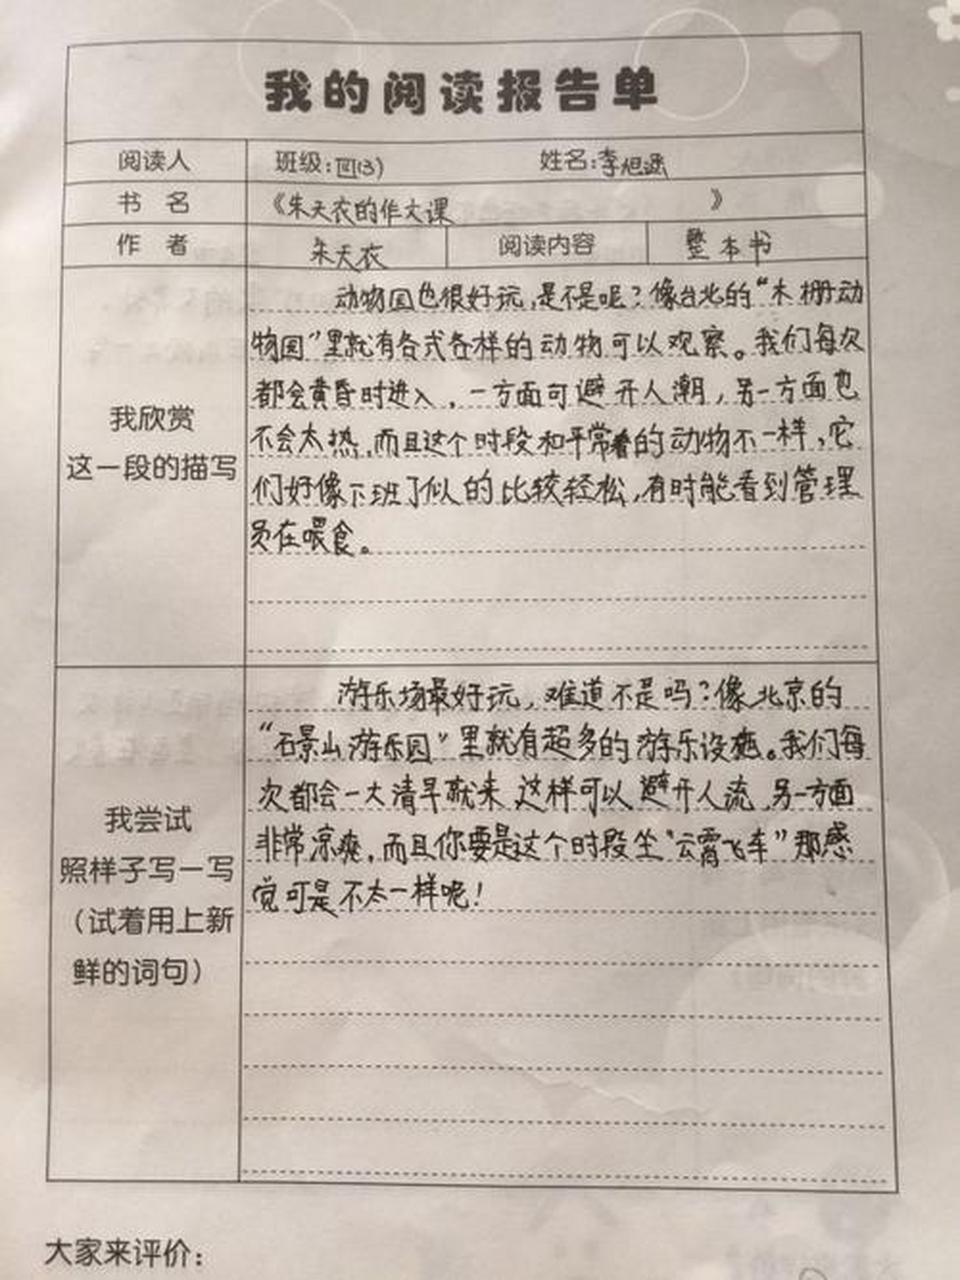 我的阅读报告单
阅读人 班级:四(3) 姓名:李旭涵
书 名 《朱天衣的作文课 》
作 者 朱天衣 阅读内容 整本书
我欣赏
这一段的描写
动物园也很好玩,是不是呢?像台北的“木栅动
物园”里就有各式各样的动物可以观察。我们每次
都会黄昏时进入,一方面可避开人潮,另一方面也
不会太热,而且这个时段和平常看的动物不一样,它
们好像下班了似的比较轻松,有时能看到管理
员在喂食。
我尝试
照样子写一写
(试着用上新
鲜的词句)
游乐场最好玩,难道不是吗?像北京的
“石景山游乐园”里就有超多的游乐设施。我们每
次都会一大清早就来,这样可以避开人流,另一方面
非常凉爽,而且你要是这个时段坐“云霄飞车”那感
觉可是不太一样呢!
大家来评价: